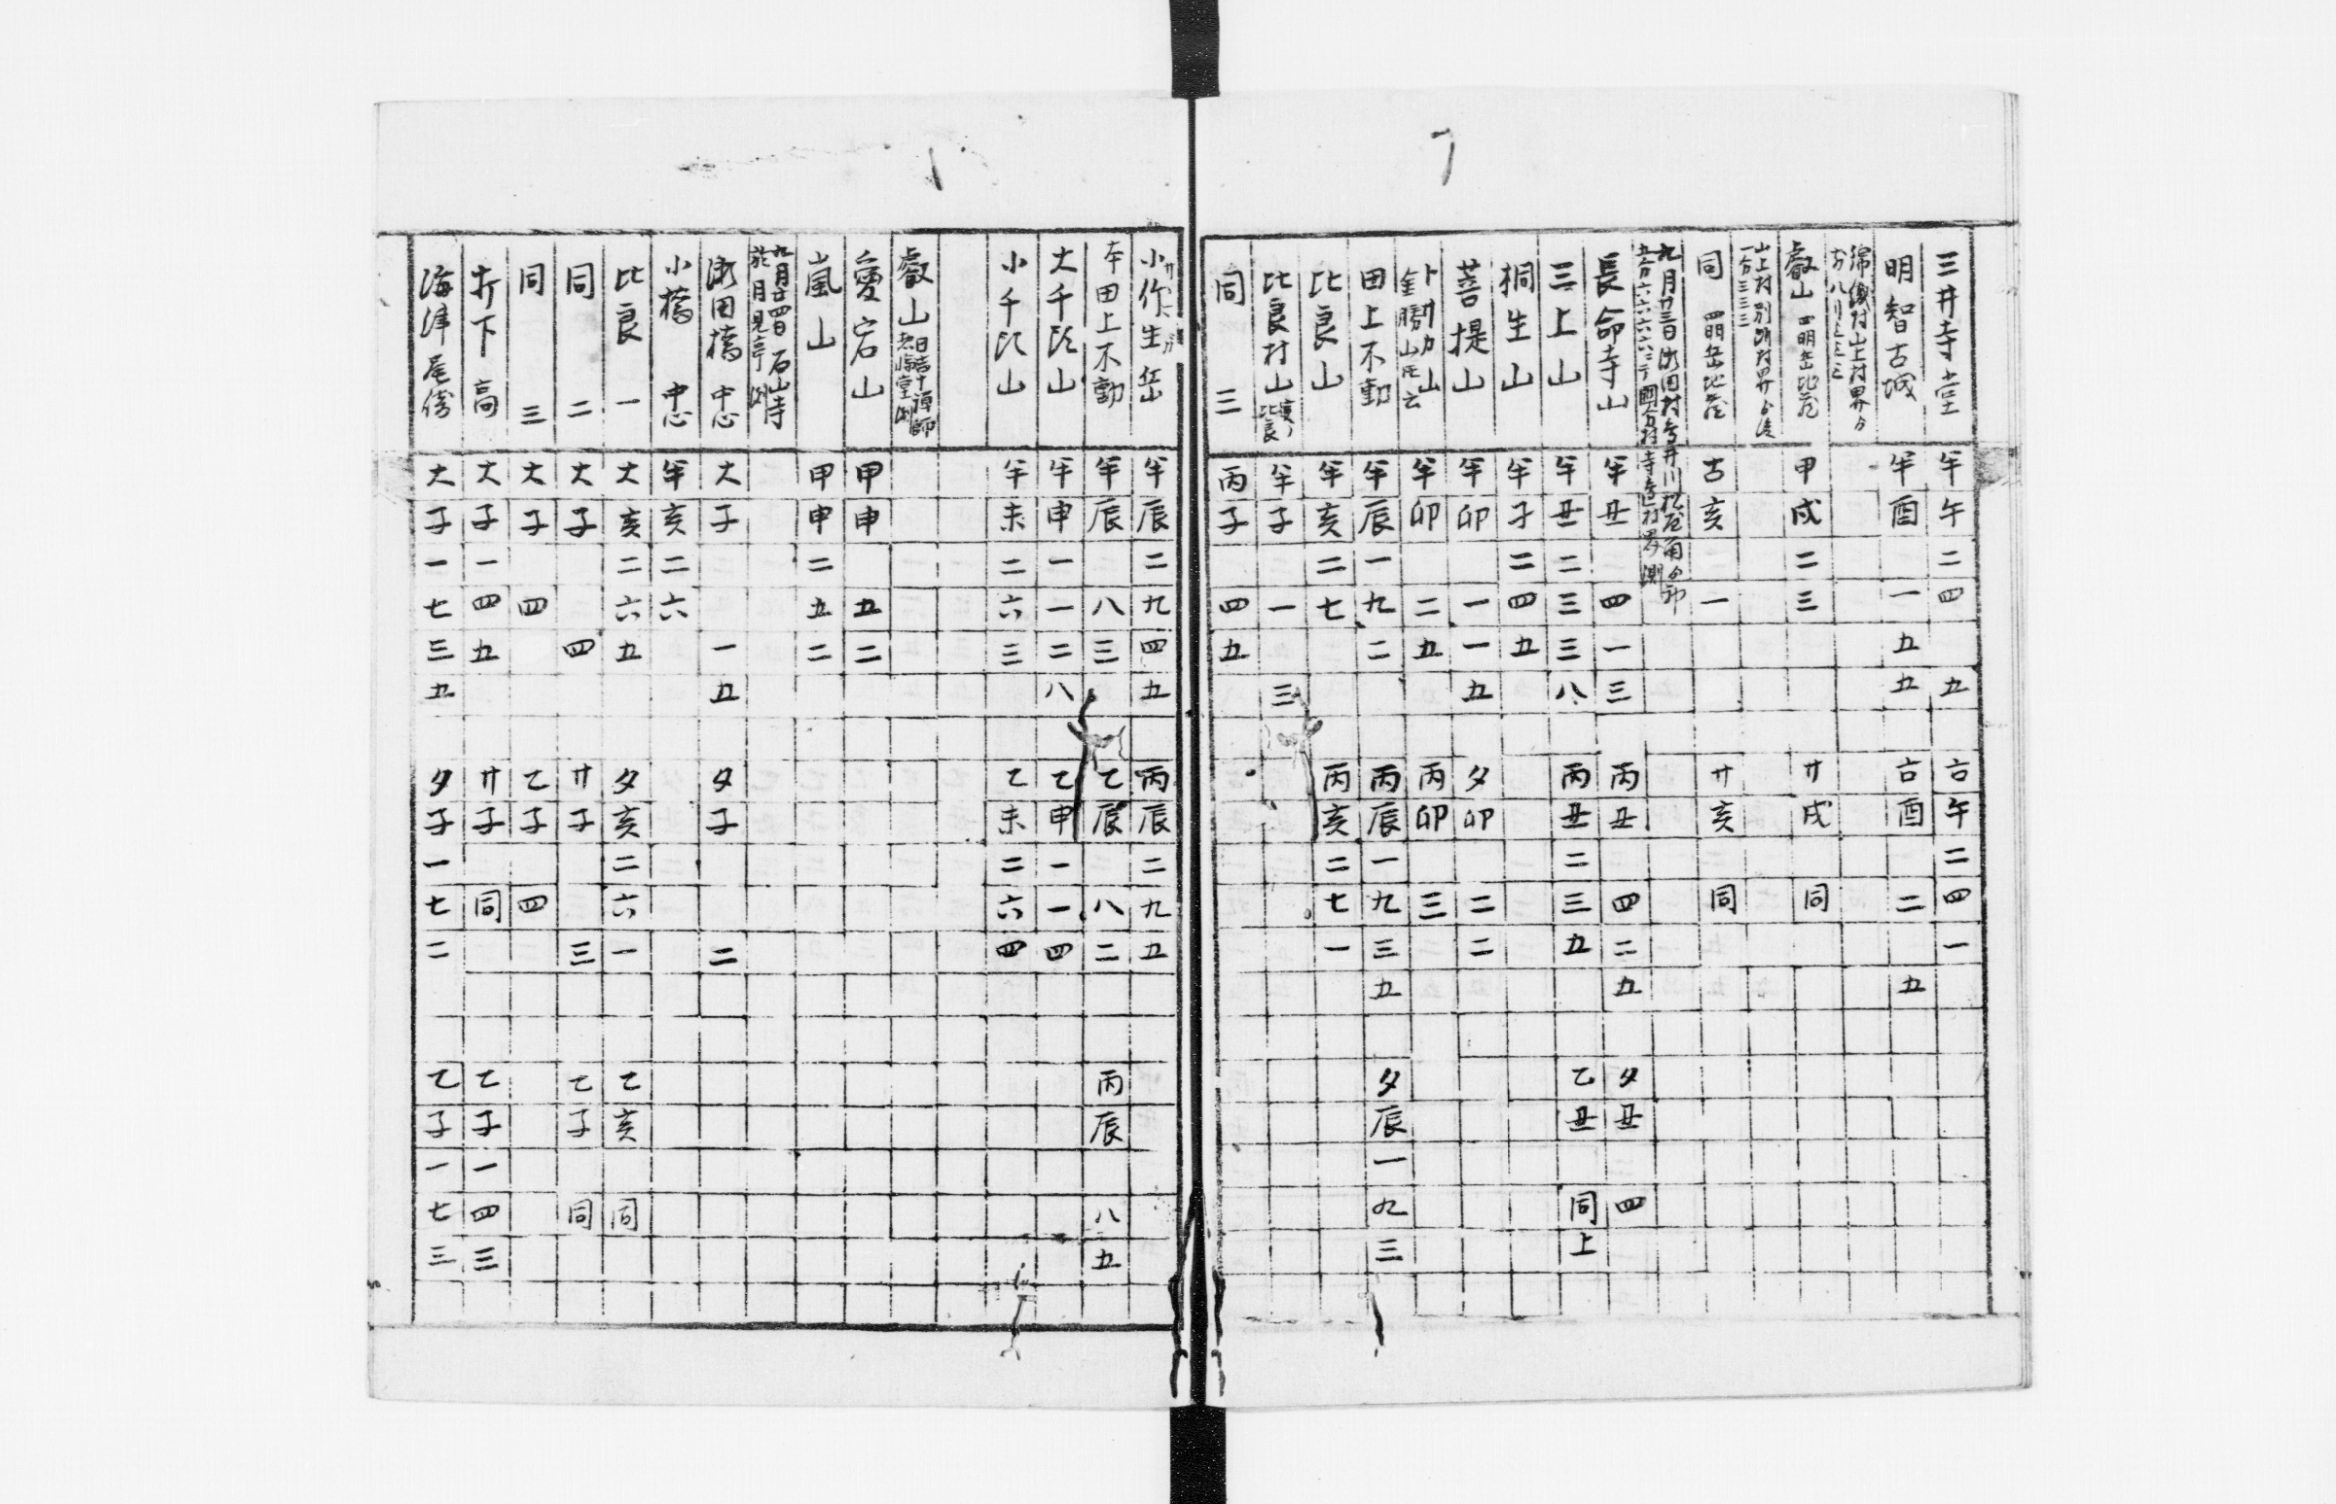 三井寺堂 半午二四 五 古午二四一
明智古城 半酉 一五五 古酉 二 五
錦織村山上村界ゟ
叡山 四明岳地蔵 甲戌二三 廾戌 同
山上村別所村界ゟ
一分三三三
同 四明岳地蔵 古亥 一 廾亥 同
九月廿三日
長命寺山 半丑 四一三 丙丑 四二五 夕丑 四
三上山 半丑二三三八 丙丑二三五 乙丑 同上
桐生山 半子二四五
菩提山 半卯 一一五 夕卯 二二
半卯 二五 丙卯 三
田上不動 半辰一九二 丙辰一九三五 夕辰一九三
比良山 半亥二七 丙亥二七一
比良村山 半子 一 三
同 三 丙子 四五
小作生岳 半辰二九四五 丙辰二九五
本田上不動 半辰 八三 乙辰 八二 丙辰 八五
大千頭山 半申一一二八 乙申一一四
小千頭山 半未二六三 乙未二六四
叡山
愛宕山 甲申 五二
嵐山 甲申二五二
九月廿四日 石山寺
於月見亭測
勢田橋 中心 大子 一五 夕子 二
小橋 中心 半亥二六
比良 一 大亥二六五 夕亥二六一 乙亥 同
同 二 大子 四 廾子 三 乙子 同
同 三 大子 四 乙子 四
打下 高 大子一四五 廾子 同 乙子一四三
海津尾傍 大子一七三五 夕子一七二 乙子一七三